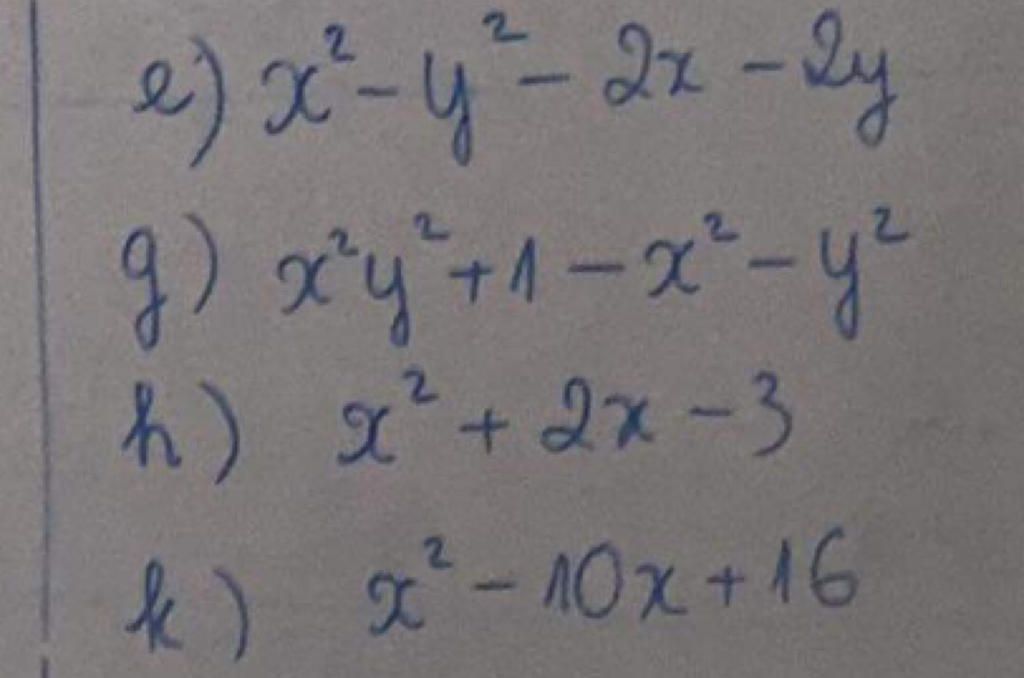 e) x² - y² - 2x - 2y
g) x²y² + 1 - x² - y²
h) x² + 2x - 3
k) x² - 10x + 16